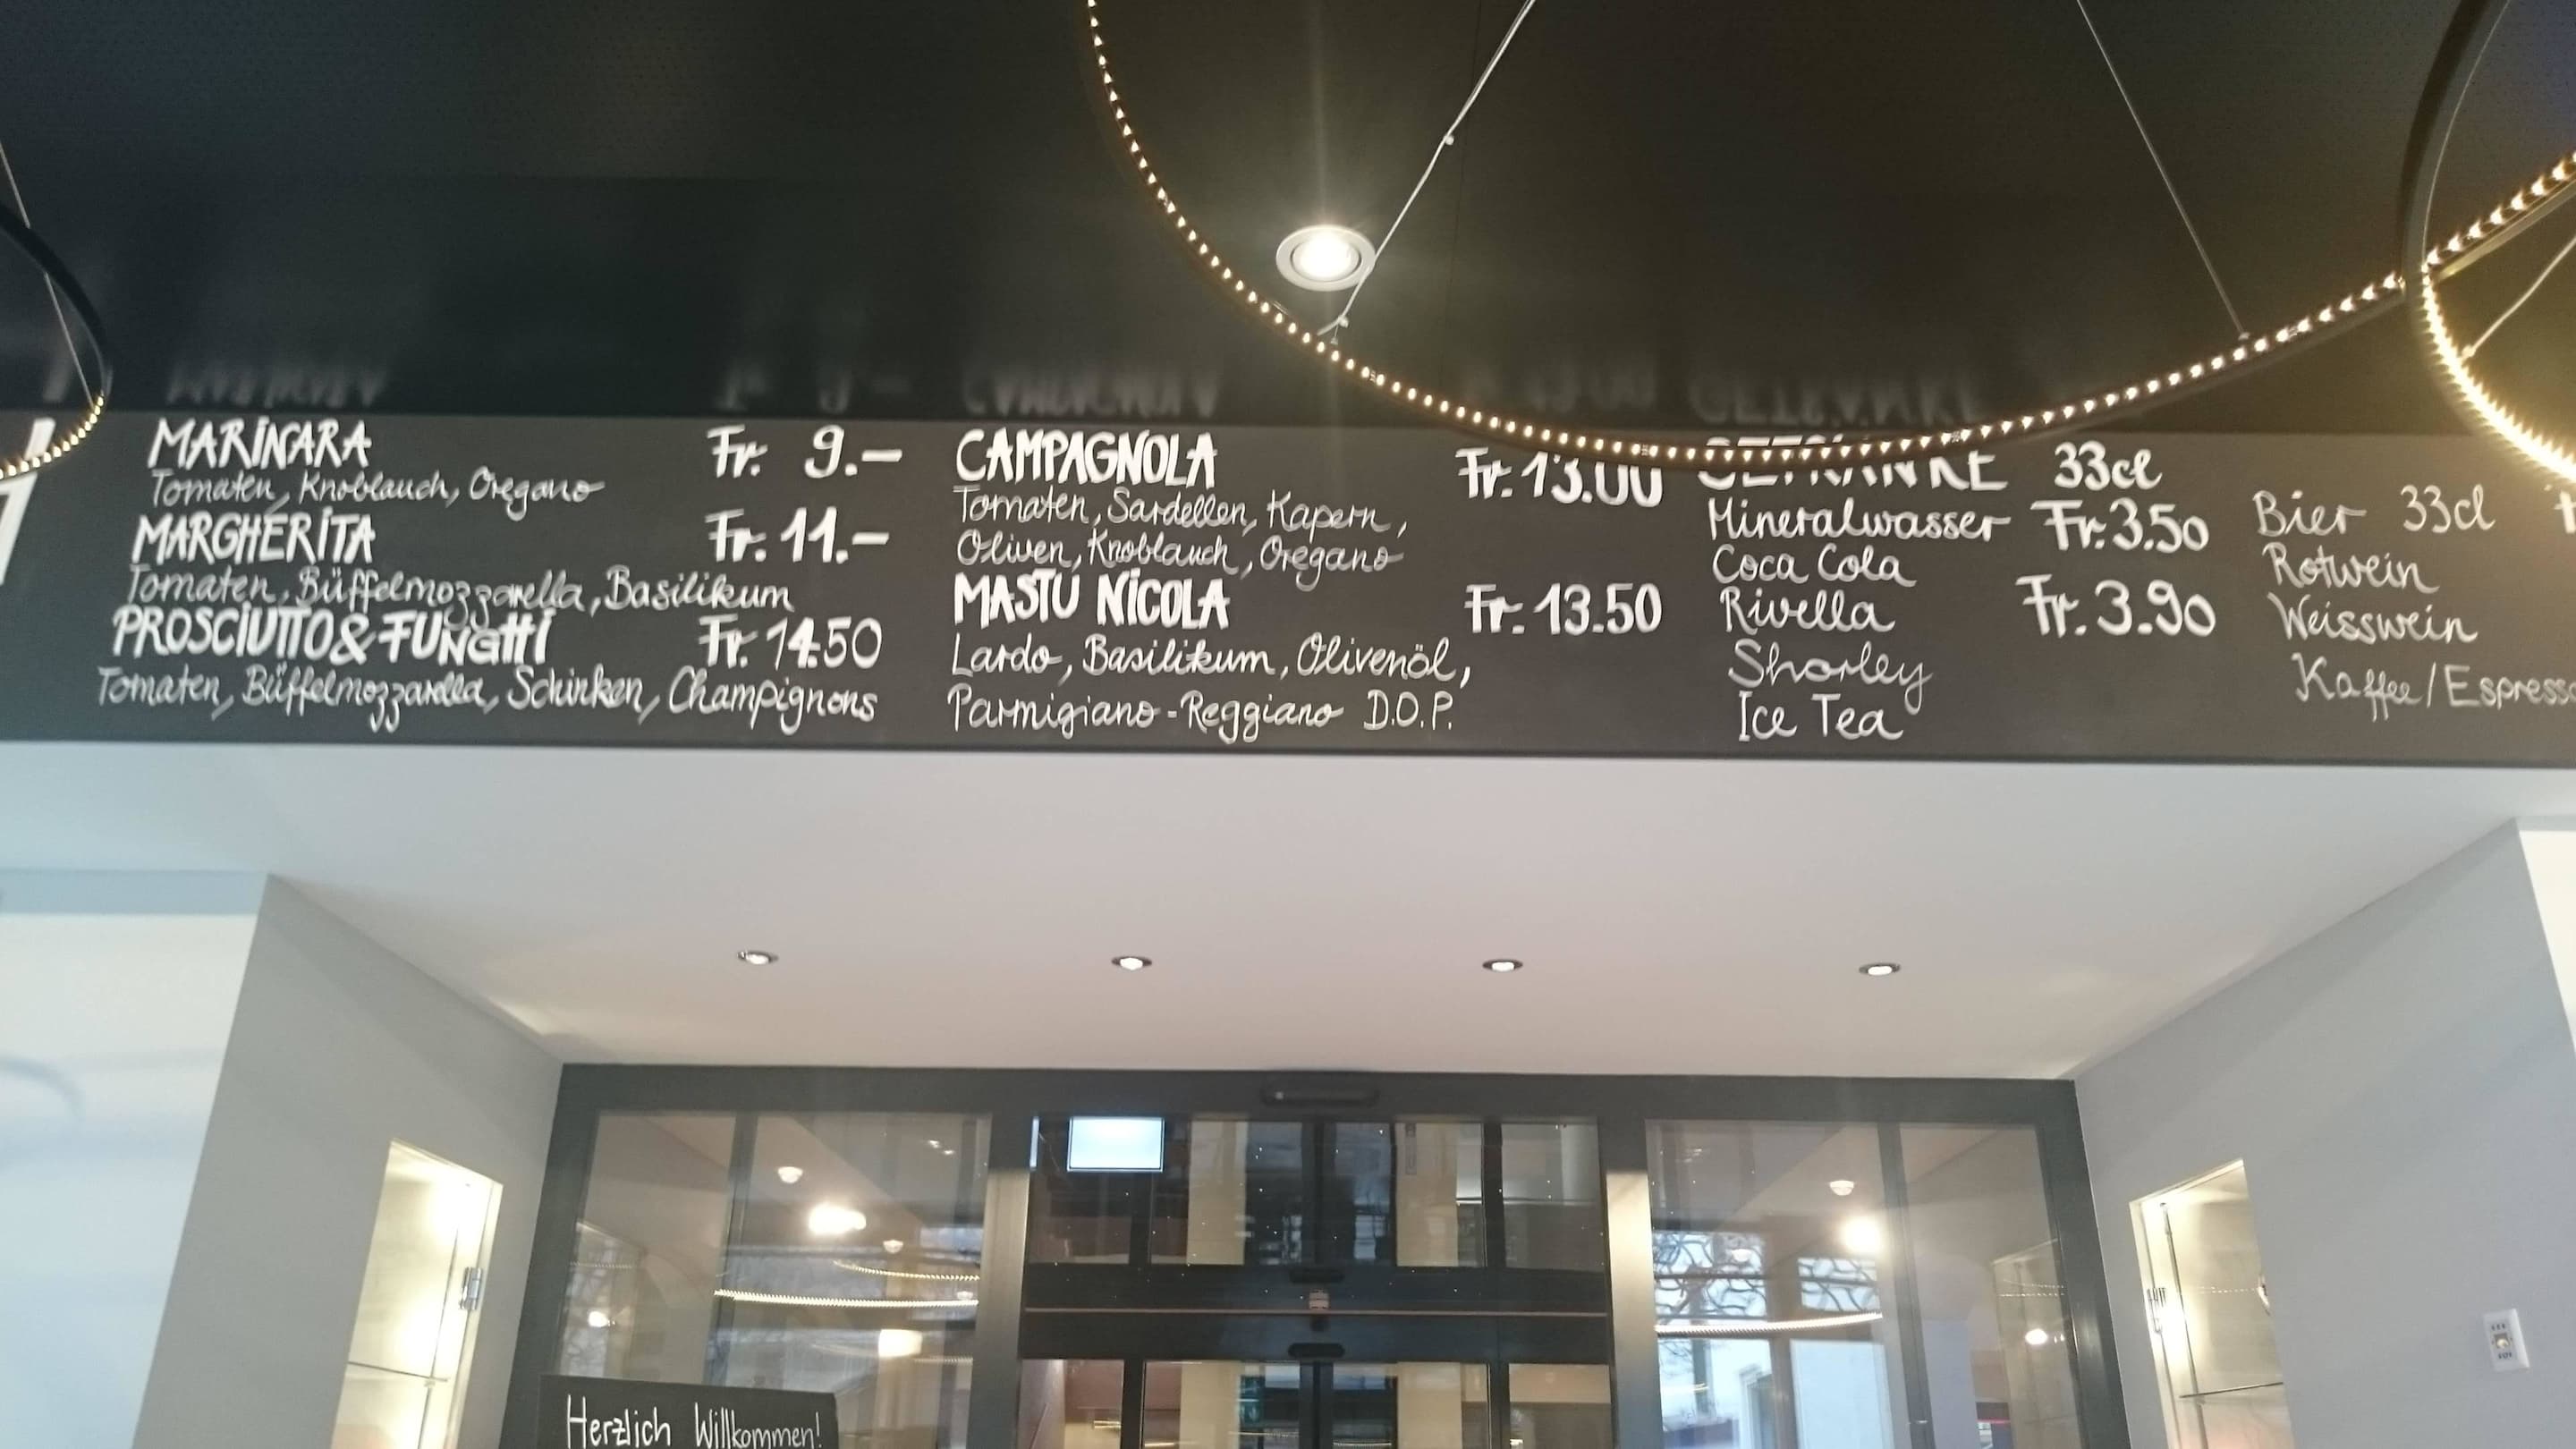 MARINARA Fr. 9.–
Tomaten, Knoblauch, Oregano
MARGHERITA Fr. 11.–
Tomaten, Büffelmozzarella, Basilikum
PROSCIUTTO & FUNGHI Fr. 14.50
Tomaten, Büffelmozzarella, Schinken, Champignons
CAMPAGNOLA Fr. 13.00
Tomaten, Sardellen, Kapern,
Oliven, Knoblauch, Oregano
MASTU NICOLA Fr. 13.50
Lardo, Basilikum, Olivenöl,
Parmigiano-Reggiano D.O.P.
GETRÄNKE 33cl
Mineralwasser Fr. 3.50
Coca Cola
Rivella Fr. 3.90
Shorley
Ice Tea
Bier 33cl
Rotwein
Weisswein
Kaffee/Espresso
Herzlich Willkommen!